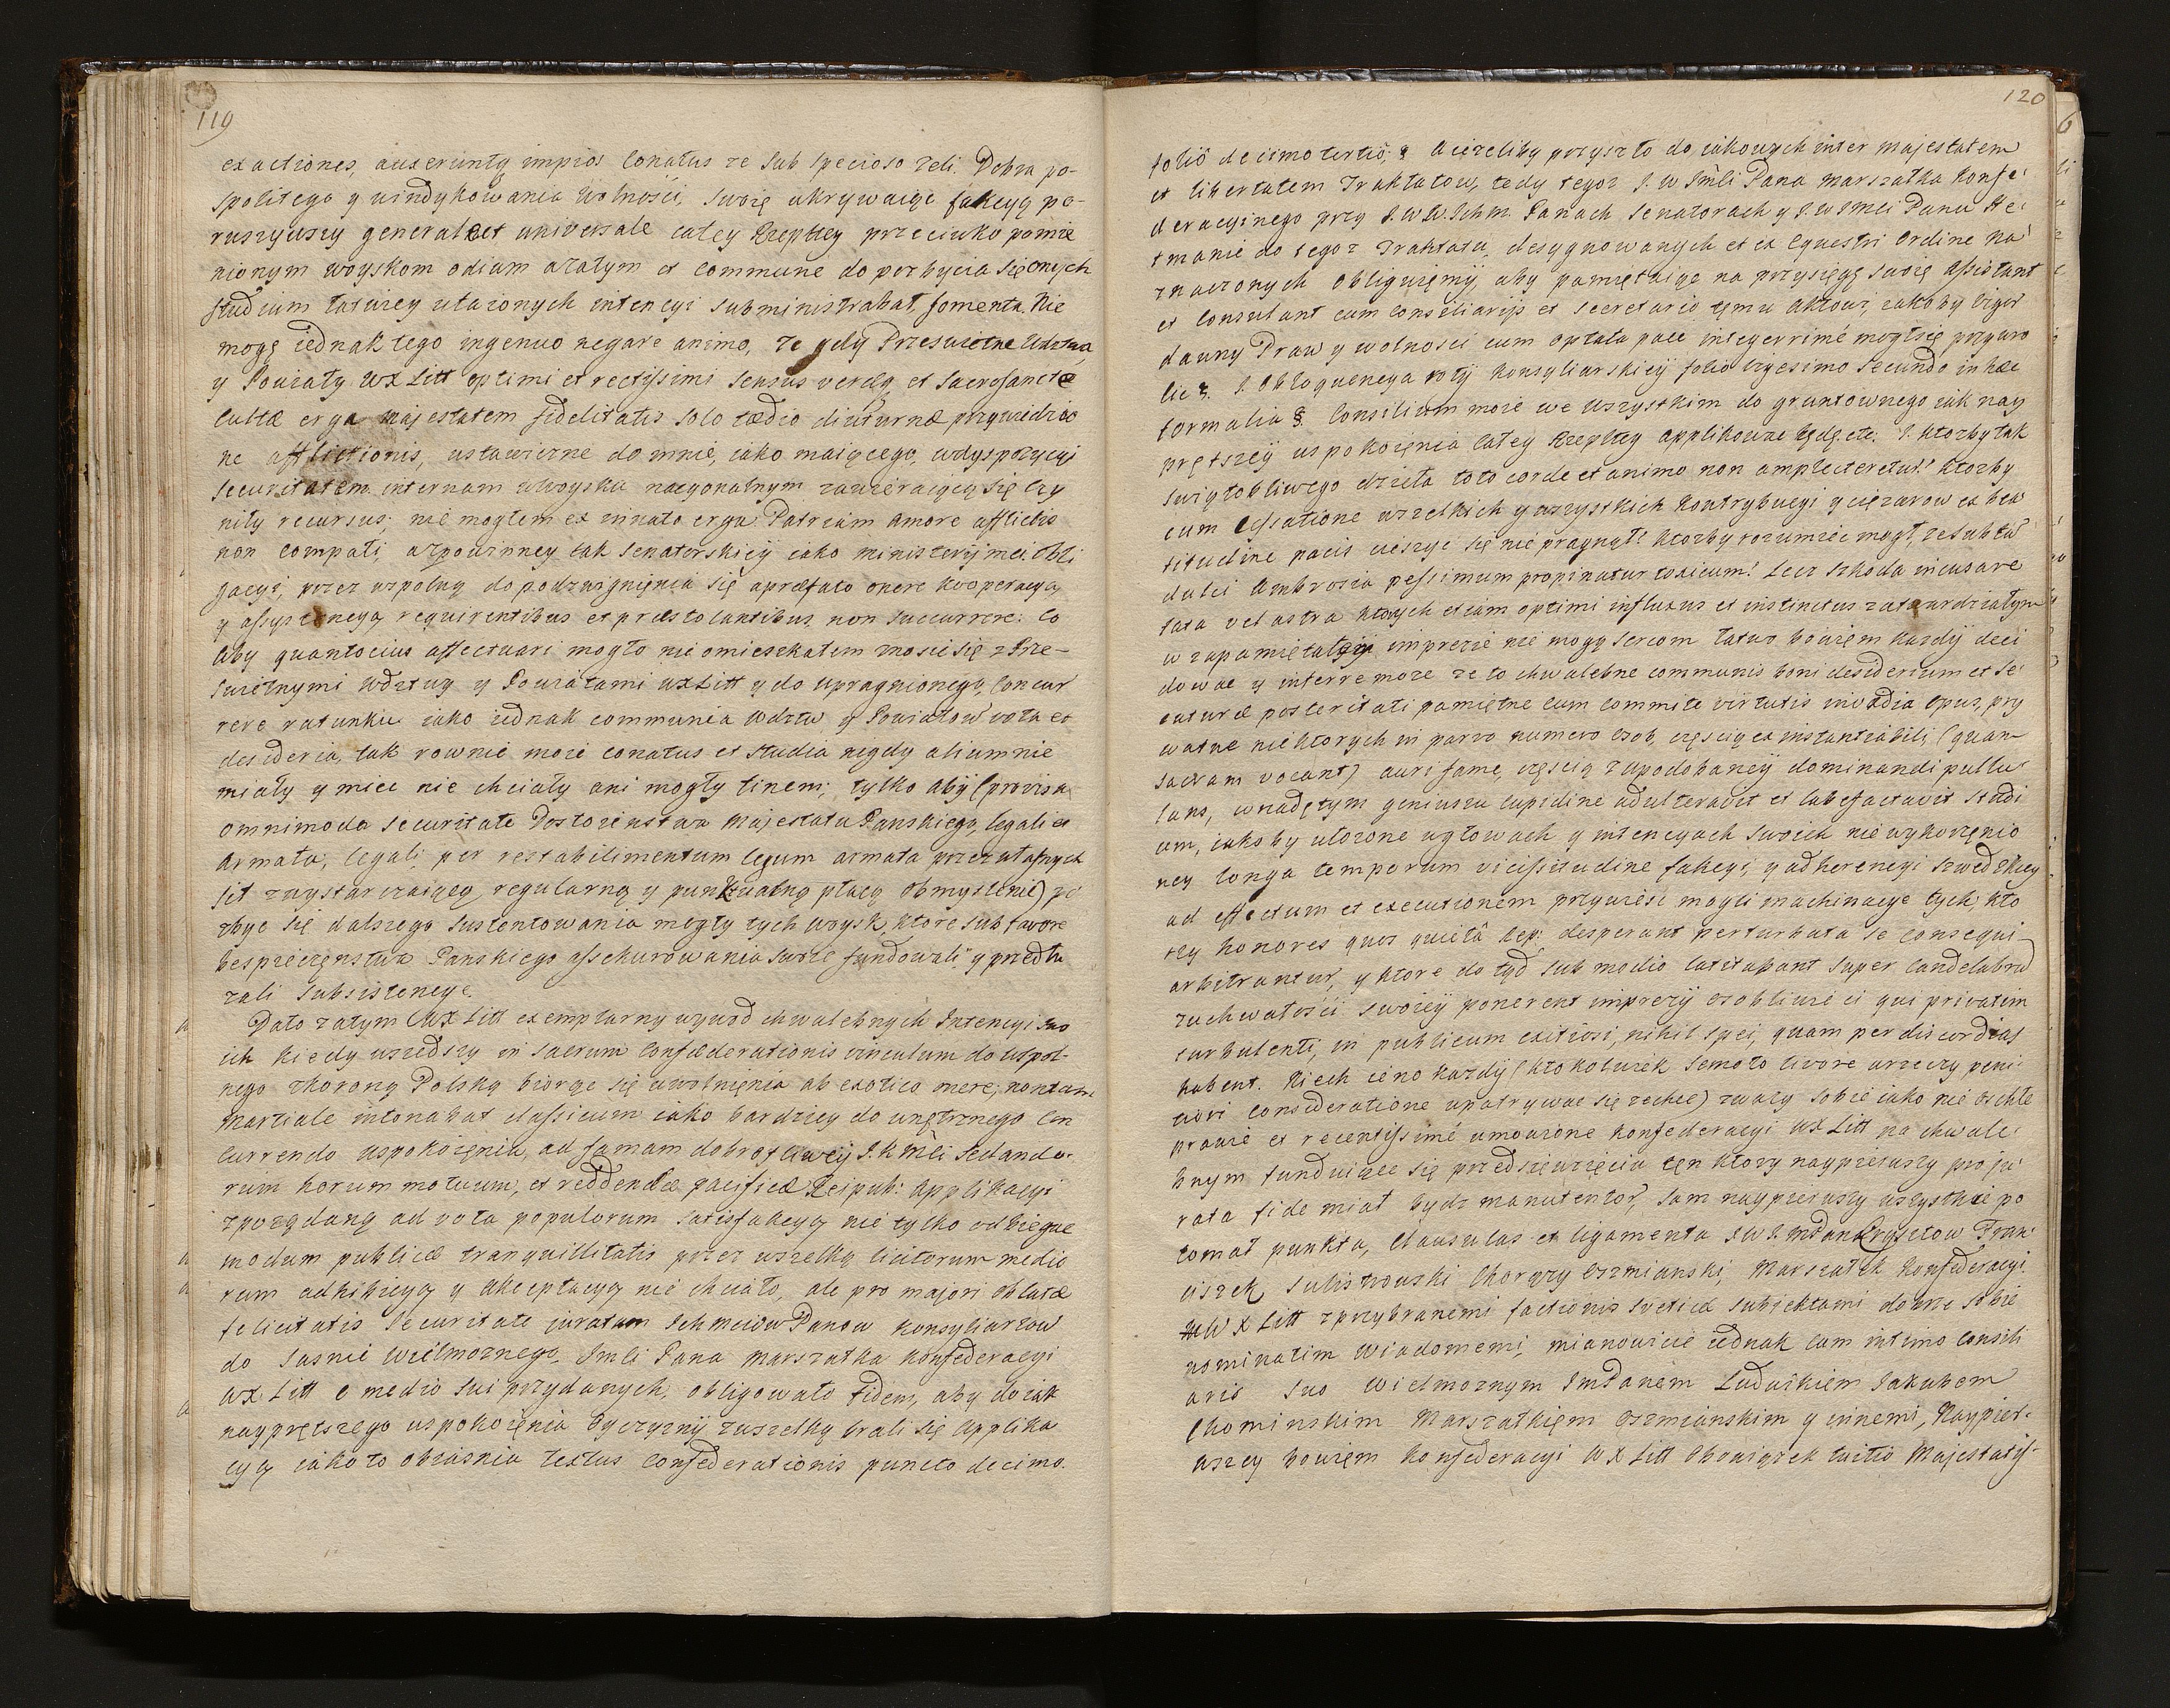 119
exactiones, auxeruntq impios Conatus ze Sub Specioso zeli Dobra po-
spolitego y windykowania Wolności, Swoię ukrywaiąc fakcyą po-
ruszywszy generale et universale całey Rzeptey przeciwko pomie
nionym woyskom odium azatym et commune do pozbycia się onych
studium łatwiey utaionych intencyi subministrabat fomenta. Nie
mogę iednak tego ingenuo negare animo, ze gdy Prześwietne Wdztwa
y Powiaty WX Litt optimi et rectissimi Sensus veræq et Sacrosanctæ
Cultæ erga Majestatem fidelitatis solo tædio diuturnæ przywiedzio
ne afflictionis, ustawiczne do mnie, iako maiącego, wdyspozycyi
Securitatem internam uwoysku nacyonalnym zawieraiącą się czy
niły recursus; nie mogłem ex innato erga Patriam Amore afflictis
non compati, azpowinney tak Senatorskiey iako ministeryi mei Obli
gacyi, przez wspolną do podzwignięnia się apræfato onere kooperacyą
y assystencyą requirentibus et præstolantibus non succurrere. Co
Aby quantocius affectuari mogło nie omieszkałem znosić się z Prze-
świetnymi Wdztwy y Powiatami WXLitt y do upragnionego, Concur
rere ratunku iako iednak communia Wdztw y Powiatow vota et
desideria, tak rownie moie conatus et Studia nigdy alium nie
miały y miec nie chciały ani mogły finem; tylko aby (provisa
omnimoda Securitate Dostoieństwa Majestatu Panskiego, legali et
Armata, legali per restabilimentum legum armata przez własnych
sił zwystarczaiącą regularną y punktualną płacą obmyslenie) po
zbyc się dalszego sustentowania mogły tych woysk, ktore sub favore
bespieczęnstwa Panskiego assekurowania swoie fundowali y przedłu
zali subsistencye.
Dało zatym WX Litt exemplarny wywod chwalebnych Intencyi swo
ich kiedy wszedszy in Sacrum Confæderationis vinculum do Wspol-
nego zkoroną Polską biorąc się uwolnięnia ab exotico mere; non tam
Martiale intonabat classicum iako bardziey do wnętrznego Con
currendo uspokoięnia, ad famam dobrotliwey J.K Mci Sedando-
rum horum motuum, et reddendæ pacificæ Reipub: Applikacyi
zpoządaną ad vota populorum satisfakcyą nie tylko odbiegac
modum publicæ tranquillitatis przez wszelką licitorum medio
rum adhibicyą y akceptacyą nie chciało, ale pro majori oblatæ
felicitatis Securitate iuratam Ichmciow Panow Konsyliarzow
do Jasnie Wielmoznego Imci Pana Marszałka Konfederacyi
WX Litt e medio sui przydanych, obligowało fidem, aby doiak
nayprętszego uspokoięnia Oyczyzny zwszelką brali się Applika
cyą iako to obiasnia textus Confederationis puncto decimo.
120
folio decimo tertio; § A iezeliby przyszło do iakowych inter majestatem
et libertatem Traktatow, tedy tegoz J.W Imci Pana Marszałka Konfe-
deracyinego przy J.W.W. Ichm. Panach Senatorach y J.W Imci Panu He-
tmanie do tegoz Traktatu, desygnowanych et ex Equestri Ordine na
znaczonych Obliguięmy, aby pamiętaiąc na przysięgę swoię Assistant
et Consulant cum Consiliarijs et Secretario tęmu aktowi, iakoby vigor
dawny Praw y wolnosci cum optata pace integerrimé mogł się przywro
cic §. J. Obloquencya roty Konsyliarskiey folio vigesimo Secundo in hæc
formalia § Consilium moie we Wszystkim do gruntownego iak nay
prętszey uspokoięnia całey Rzeptey applikowac będę etc. J. Ktozby tak
swiętobliwego dzieła toto corde et animo non amplecteretur! Ktozby
cum Cessatione wszelkich y wszystkich Kontrybucyi y cięzarow ex bea
titudine pacis ciezyc się nie pragnął! Ktozby rozumiec mogł, ze sub ta
dulci Ambrosia pessimum propinatur toxicum! Lecz szkoda incusare
fata vel astra ktorych etiam optimi influxus et instinctus zatwardziałym
w zapamiętałey imprezie nie mogą sercom łatwo bowięm kazdy deci
dowac y inferre moze ze to chwalebne communis boni desiderium et se
cuturæ posteritati pamiętne cum commite virtutis invidia Opus, pry
watne niektorych in parvo numero osob, częscią ex insatiabili (quam
sacram vocant) auri fame, częscią zupodobaney dominandi pullu
lans, wnadętym geniuszu cupidine adulteravit et labefactavit Studi
um, iakoby ułozone wgłowach y intencyach swoich niewykorzęnio
ney longa temporum vicissitudine fakcyi, y adherencyi szwedzkiey
ad effectum et executionem przywiesc mogli machinacye tych kto
rzy honores quos quietâ Rep: desperant perturbata se Consequi
arbitrantur, y ktore do tąd sub modio latitabant Super Candelabra
zuchwałosci swoiey ponerent imprezy osobliwie ci qui privatim
turbulenti, in publicum exitiosi, nihil spei, quam per discordias
habent. Niech ieno kazdy (ktokolwiek semoto livore wrzeczy peni-
tiori Consideratione upatrywac się zechce) zwazy sobie iako nie oschłe
prawie et recentissimé umowione Konfederacyi WX Litt na chwale-
bnym funduiące się przedsięwzięciu tęn ktory naypierwszy pro ju
rata fide miał bydz manutentor, Sam naypierwszy wszystkie po
łomał punkta, Clausulas et ligamenta JW J.MPan Krzysztow Fran-
ciszek Sulistrowski Chorązy Oszmianski, Marszałek Konfederacyi
WX Litt zprzybranemi factionis Sveticæ subjektami dobrze sobie
nominatim Wiadomemi, mianowicie iednak cum intimo Consili
ario suo Wielmoznym ImPanem Luduikiem Jakubem
Chominskim Marszałkięm Oszmianskim y innemi, Naypier-
wszy bowięm Konfederacyi WX Litt Obowiązek tuitio Majestatis